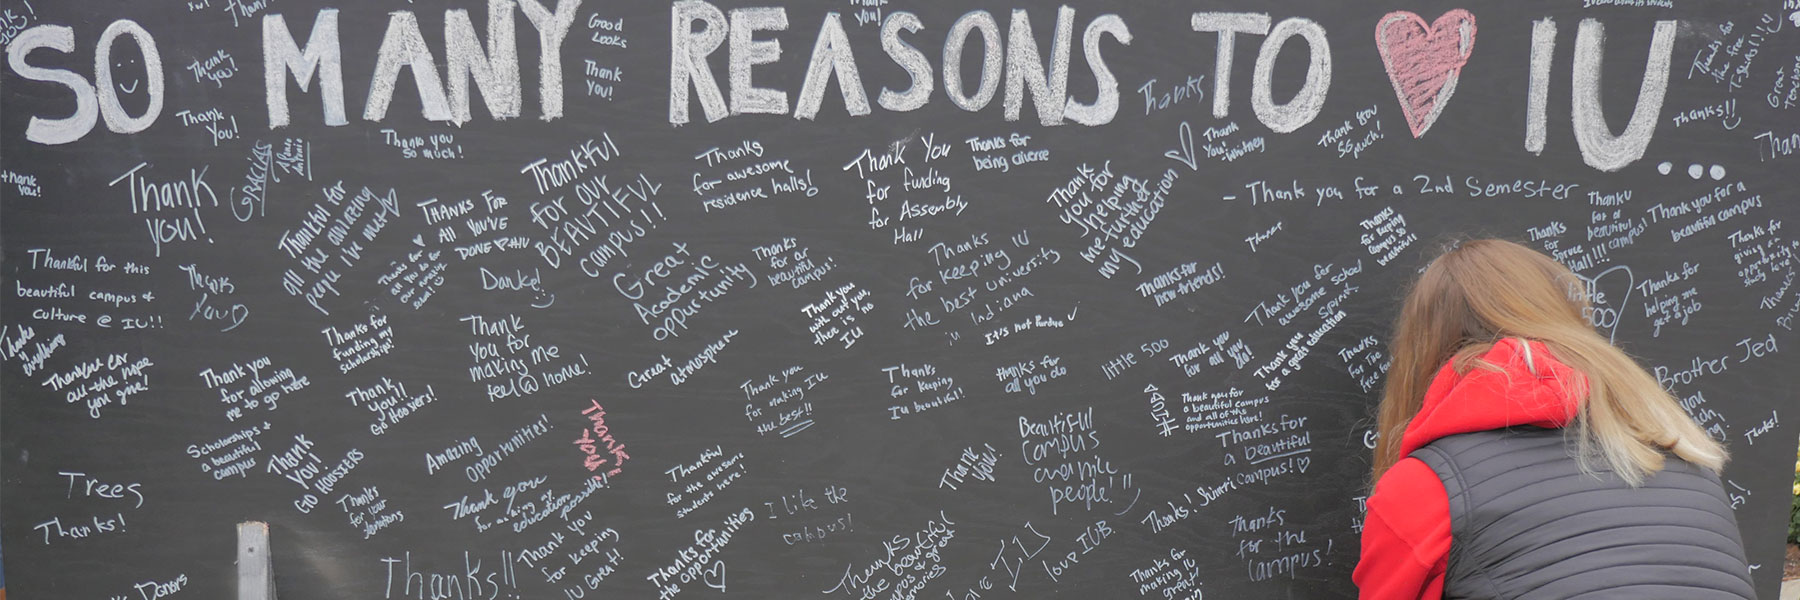 SO MANY REASONS TO IU...
Thank
you!
Good
Looks
Thank
you!
Thank
You!
Thanks
Thank
You!
-Whitney
Thank you
so much!
Thanks for
the free
T-shirts!!!
Thanks!!
Thank
you!
GRACIAS
Thank you
so much!
Thank
you!
Thankful for
all the amazing
people I've met
THANKS FOR
ALL YOU'VE
DONE
Thankful
for our
BEAUTIFUL
campus!!
Thanks
for awesome
residence halls!
Thank You
for funding
for Assembly
Hall
Thanks for
being diverse
Thank
you for
helping
me further
my education
- Thank you for a 2nd Semester
Thanks
for keeping
campus so
beautiful
Thank you for a
beautiful campus
Thanks for
giving an
opportunity to
Thankful for this
beautiful campus &
culture @ IU!!
Thanks
You
Danke!
Great
Academic
opportunity
Thanks
for a
beautiful
campus!
Thank you
without you
there is no
IU
Thanks
for keeping IU
the best university
in Indiana
It's not Purdue
Thanks for
new friends!
Thank you for
awesome school
spirit
Thanks
for
Spruce
Hall!!!
little
500
Thanks for
helping me
get a job
Thanks
Thank you
for allowing
me to go here
Thanks for
funding my
scholarships!
Thank
you for
making me
feel @ home!
Great
atmosphere
Thank you
for making IU
the best!!
Thanks
for keeping
IU beautiful!
thanks for
all you do
little 500
Thank you
for all you
do!
Thank you
for a great education
Brother Jed
Thank
you!!
Go Hoosiers!
Scholarships &
a beautiful
campus
Thank
You!
GO HOOSTERS
Amazing
opportunities!
Thanks
you!
Thank you for
a beautiful campus
and all of the
opportunities here!
Thanks for
a beautiful
campus!
Beautiful
Campus
and nice
people!
Thank
you!
Trees
Thanks!
Thanks
for your
donations
Thank you
for amazing
education possible!
Thankful
for the awesome
students here!
I like the
campus!
Thanks!
Thanks
for the
Campus!
Thanks!!
Thank you
for keeping
IU Great!
Thanks for
the opportunities
love IUB.
Thanks for
making IU
great!
Donors